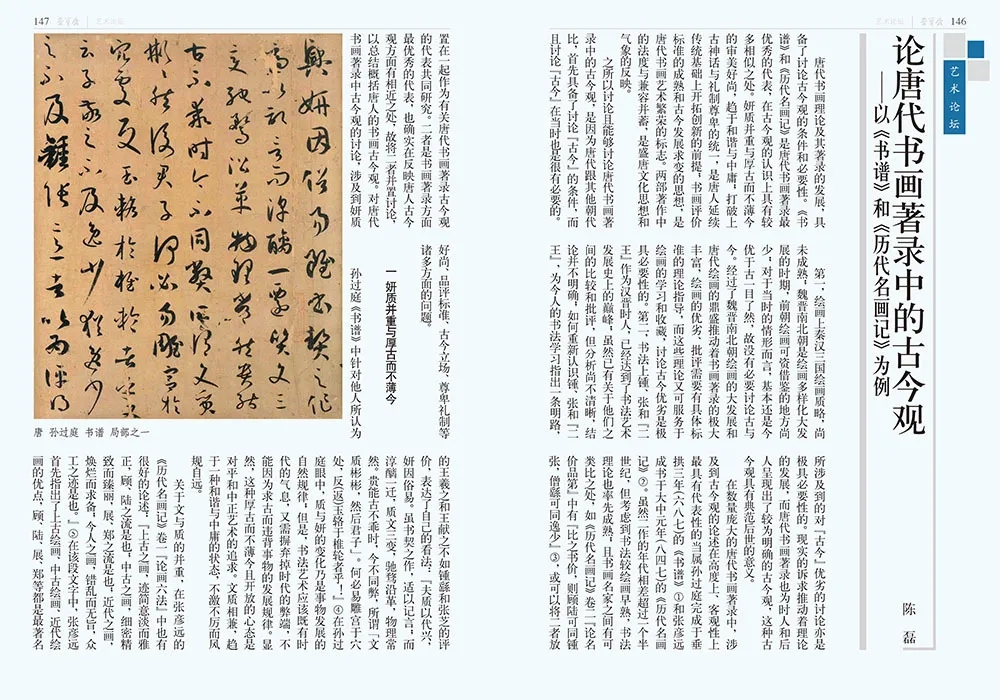 146
荣宝斋
艺术论坛
艺术论坛
论唐代书画著录中的古今观
——以《书谱》和《历代名画记》为例
陈 磊
唐代书画理论及其著录的发展，具
备了讨论古今观的条件和必要性。《书
谱》和《历代名画记》是唐代书画著录最
优秀的代表，在古今观的认识上具有较
多相似之处。妍质并重与厚古而不薄今
的审美好尚，趋于和谐与中庸，打破上
古神话与礼制尊卑的统一，是唐人延续
传统基础上开拓创新的前提，书画评价
标准的成熟和古今发展求变的思想，是
唐代书画艺术繁荣的标志。两部著作中
的法度与兼容并蓄，是盛唐文化思想和
气象的反映。
之所以讨论且能够讨论唐代书画著
录中的古今观，是因为唐代跟其他朝代
比，首先具备了讨论『古今』的条件，而
且讨论『古今』在当时也是很有必要的。
第一，绘画上秦汉三国绘画质略，尚
未成熟，魏晋南北朝是绘画多样化大发
展的时期，前朝绘画可资借鉴的地方尚
少，对于当时的情形而言，基本还是今
优于古一目了然，故没有必要讨论古与
今。经过了魏晋南北朝绘画的大发展和
唐代绘画的鼎盛推动着书画著录的极大
丰富，绘画的优劣、批评需要有具体标
准的理论指导，而这些理论又可服务于
绘画的学习和收藏，讨论古今优劣是极
具必要性的。第二，书法上锺、张和『二
王』作为汉晋时人，已经达到了书法艺术
发展史上的巅峰，虽然已有关于他们之
间的比较和批评，但分析尚不清晰，结
论并不明确，如何重新认识锺、张和『二
王』，为今人的书法学习指出一条明路，
所涉及到的对『古今』优劣的讨论亦是
极具必要性的。现实的诉求推动着理论
的发展，而唐代书画著录也为时人和后
人呈现出了较为明确的古今观，这种古
今观具有典范后世的意义。
在数量庞大的唐代书画著录中，涉
及到古今观的论述在高度上、客观性上
最具有代表性的当属孙过庭完成于垂
拱三年（六八七）的《书谱》①和张彦远
成书于大中元年（八四七）的《历代名画
记》②。虽然二作的年代相差超过一个半
世纪，但考虑到书法较绘画早熟，书法
理论也率先成熟，且书画名家之间有可
类比之处，如《历代名画记》卷二『论名
价品第』中有『比之书价，则顾陆可同锺
张，僧繇可同逸少』③，或可以将二者放
147
荣宝斋
艺术论坛
與妍因俗易雖書契之作
適以記言而淳醨一遷質文三
變馳鶩沿革物理常然貴能
古不乖時今不同弊所謂文質
彬彬然後君子何必易雕宮於
穴處反玉輅於椎輪者乎又
云子敬之不及逸少猶逸少
之不及鍾張意者以為評得
唐 孙过庭 书谱 局部之一
置在一起作为有关唐代书画著录古今观
的代表共同研究。二者是书画著录方面
最优秀的代表，也确实在反映唐人古今
观方面有相近之处，故将二者并置讨论，
以总结概括唐人的书画古今观。对唐代
书画著录中古今观的讨论，涉及到妍质
好尚、品评标准、古今立场、尊卑礼制等
诸多方面的问题。
一 妍质并重与厚古而不薄今
孙过庭《书谱》中针对他人所认为
的王羲之和王献之不如锺繇和张芝的评
价，表达了自己的看法，『夫质以代兴，
妍因俗易。虽书契之作，适以记言；而
淳醨一迁，质文三变，驰骛沿革，物理常
然。贵能古不乖时，今不同弊，所谓「文
质彬彬，然后君子」。何必易雕宫于穴
处，反（返）玉辂于椎轮者乎！』④在孙过
庭眼中，质与妍的变化乃是事物发展的
自然规律，但是，书法艺术应该既有时
代的气息，又需摒弃掉时代的弊端，不
能因为求古而违背事物的发展规律。显
然，这种厚古而不薄今且开放的心态是
对平和中正艺术的追求。文质相兼，趋
于一种和谐与中庸的状态，不激不厉而风
规自远。
关于文与质的并重，在张彦远的
《历代名画记》卷一『论画六法』中也有
很好的论述，『上古之画，迹简意淡而雅
正，顾、陆之流是也；中古之画，细密精
致而臻丽，展、郑之流是也；近代之画，
焕烂而求备；今人之画，错乱而无旨，众
工之迹是也。』⑤在该段文字中，张彦远
首先指出了上古绘画、中古绘画、近代绘
画的优点，顾、陆、展、郑等都是最著名